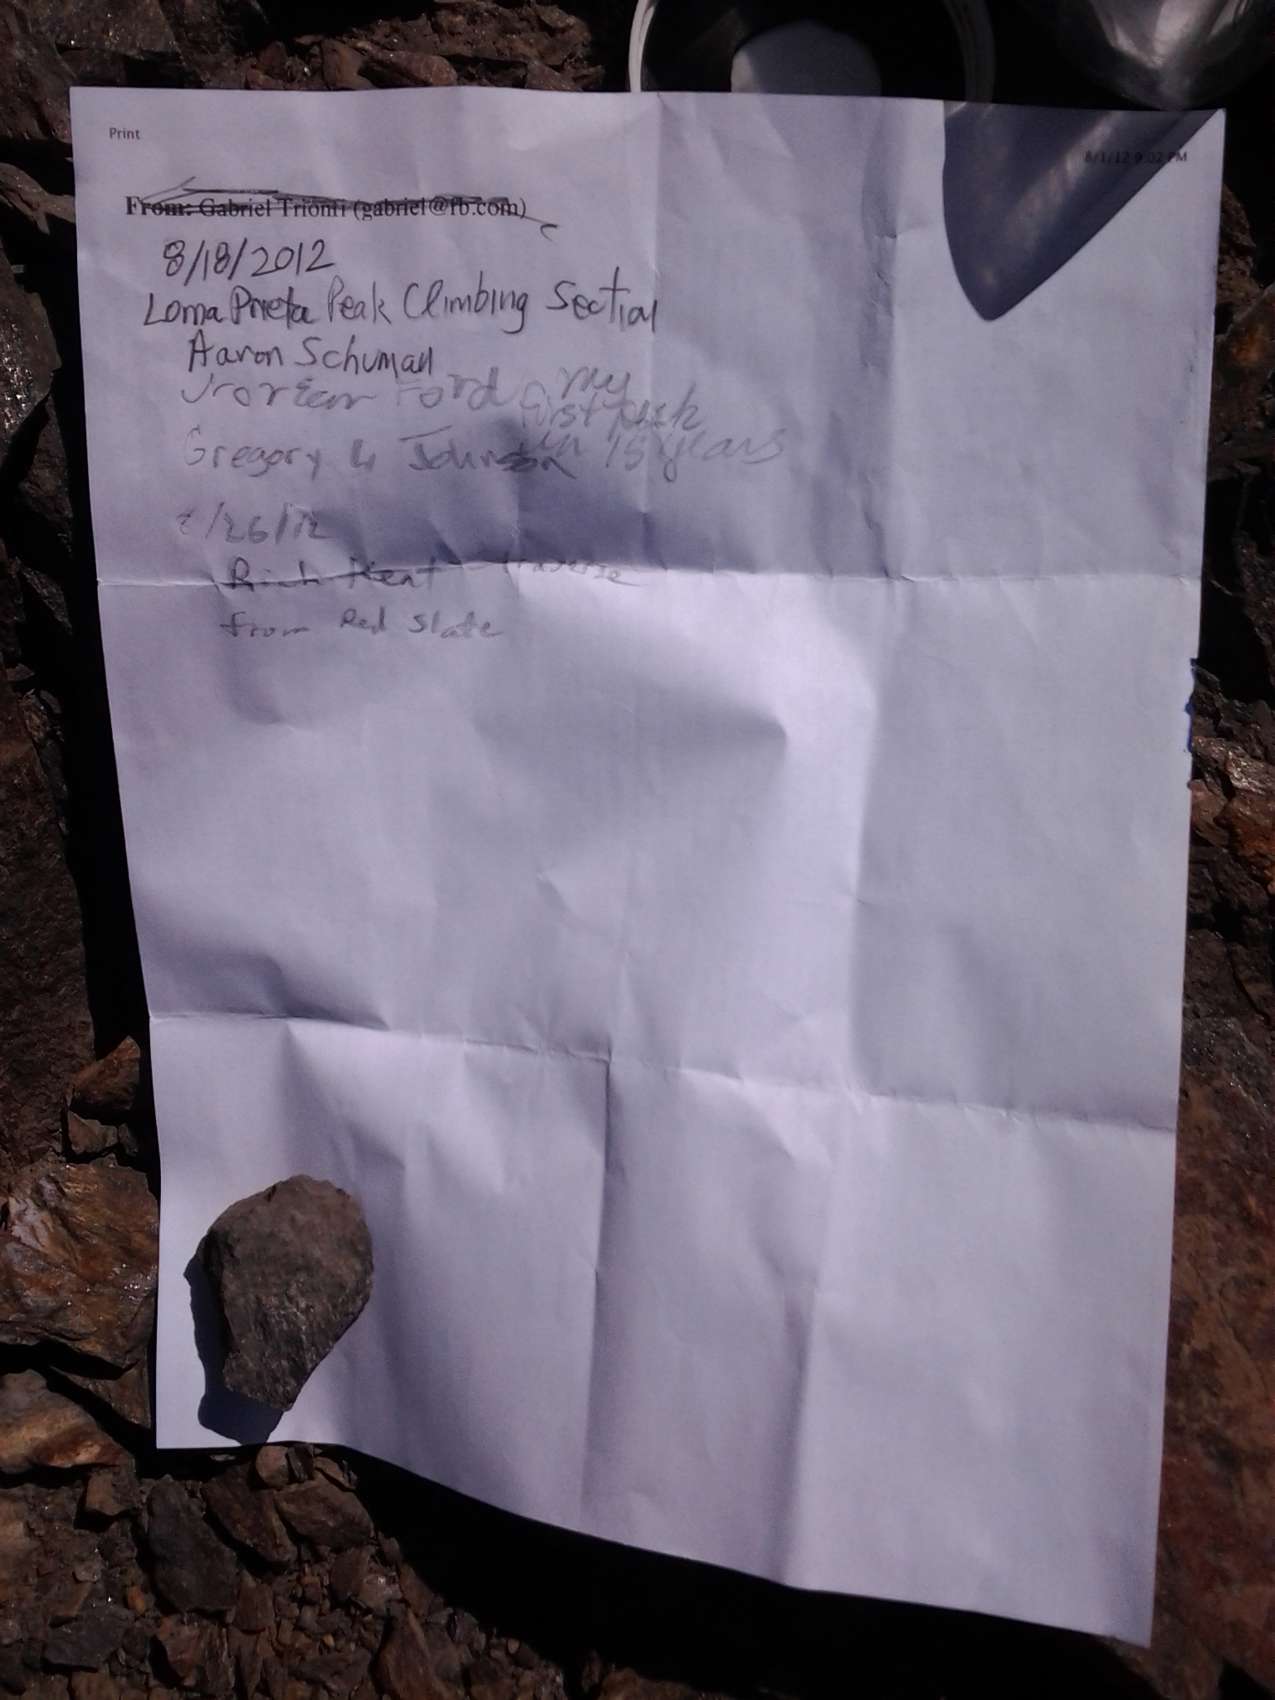 Print
8/1/12 9:02 PM
From: Gabriel Trionfi (gabriel@fb.com)
8/18/2012
Loma Prieta Peak Climbing Section
Aaron Schuman
Ford my
first peak
Gregory Johnson in 15 years
/26/12
Rich Kent traverse
from Red Slate